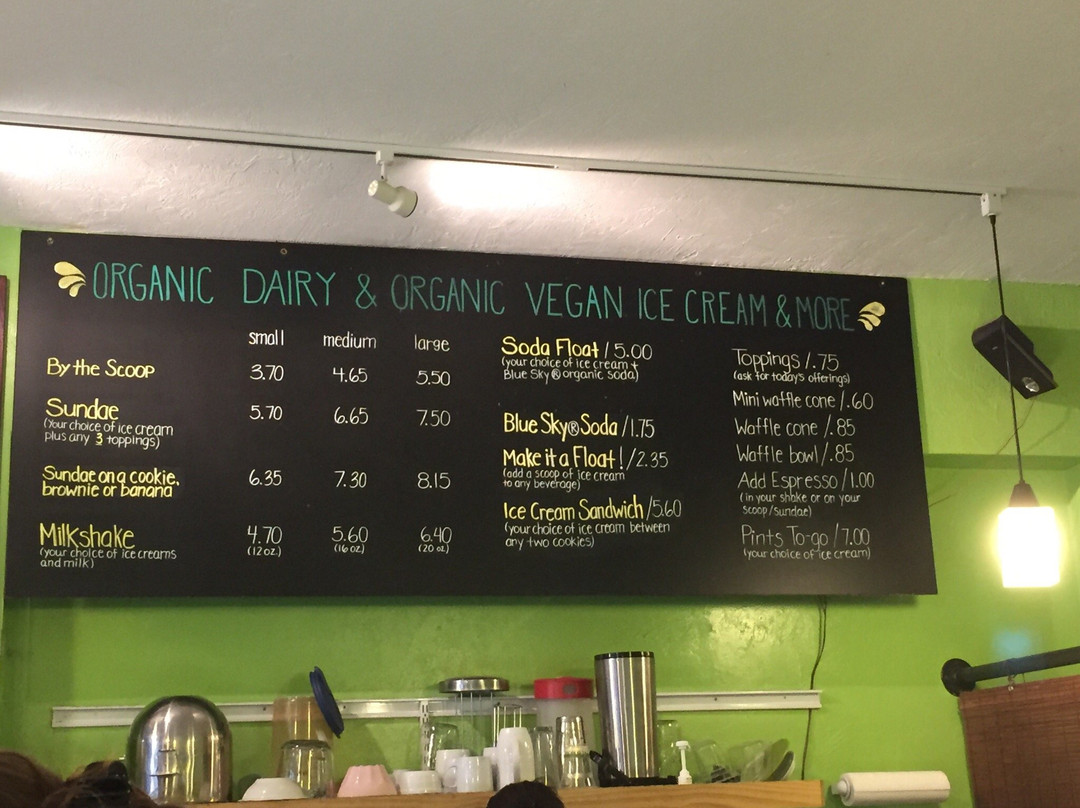 ORGANIC DAIRY & ORGANIC VEGAN ICE CREAM & MORE
small medium large
By the Scoop 3.70 4.65 5.50
Sundae 5.70 6.65 7.50
(Your choice of ice cream
plus any 3 toppings)
Sundae on a cookie, 6.35 7.30 8.15
brownie or banana
Milkshake 4.70 5.60 6.40
(your choice of ice creams (12 oz.) (16 oz.) (20 oz.)
and milk)
Soda Float / 5.00
(your choice of ice cream +
Blue Sky® organic soda)
Blue Sky® Soda / 1.75
Make it a Float! / 2.35
(add a scoop of ice cream
to any beverage)
Ice Cream Sandwich / 5.60
(your choice of ice cream between
any two cookies)
Toppings / .75
(ask for today's offerings)
Mini waffle cone / .60
Waffle cone / .85
Waffle bowl / .85
Add Espresso / 1.00
(in your shake or on your
scoop/sundae)
Pints To-go / 7.00
(your choice of ice cream)